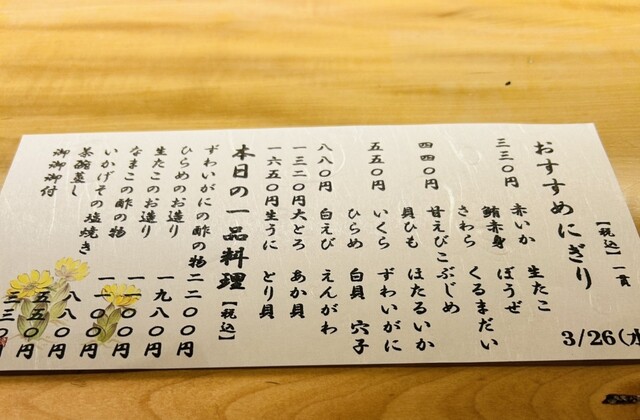 3/26(水
おすすめにぎり【税込】一貫
三三〇円 赤いか 生たこ
鮪赤身 ぼうぜ
さわら くるまだい
四四〇円 甘えびこぶじめ
貝ひも ほたるいか
五五〇円 いくら ずわいがに
ひらめ 白貝 穴子
八八〇円 白えび えんがわ
一三二〇円 大とろ あか貝
一六五〇円 生うに とり貝
本日の一品料理【税込】
ずわいがにの酢の物 二二〇〇円
ひらめのお造り 一九八〇円
生たこのお造り 一一〇〇円
なまこの酢の物 一一〇〇円
いかげその塩焼き 八八〇円
茶碗蒸し 五五〇円
御御御付 三三〇円